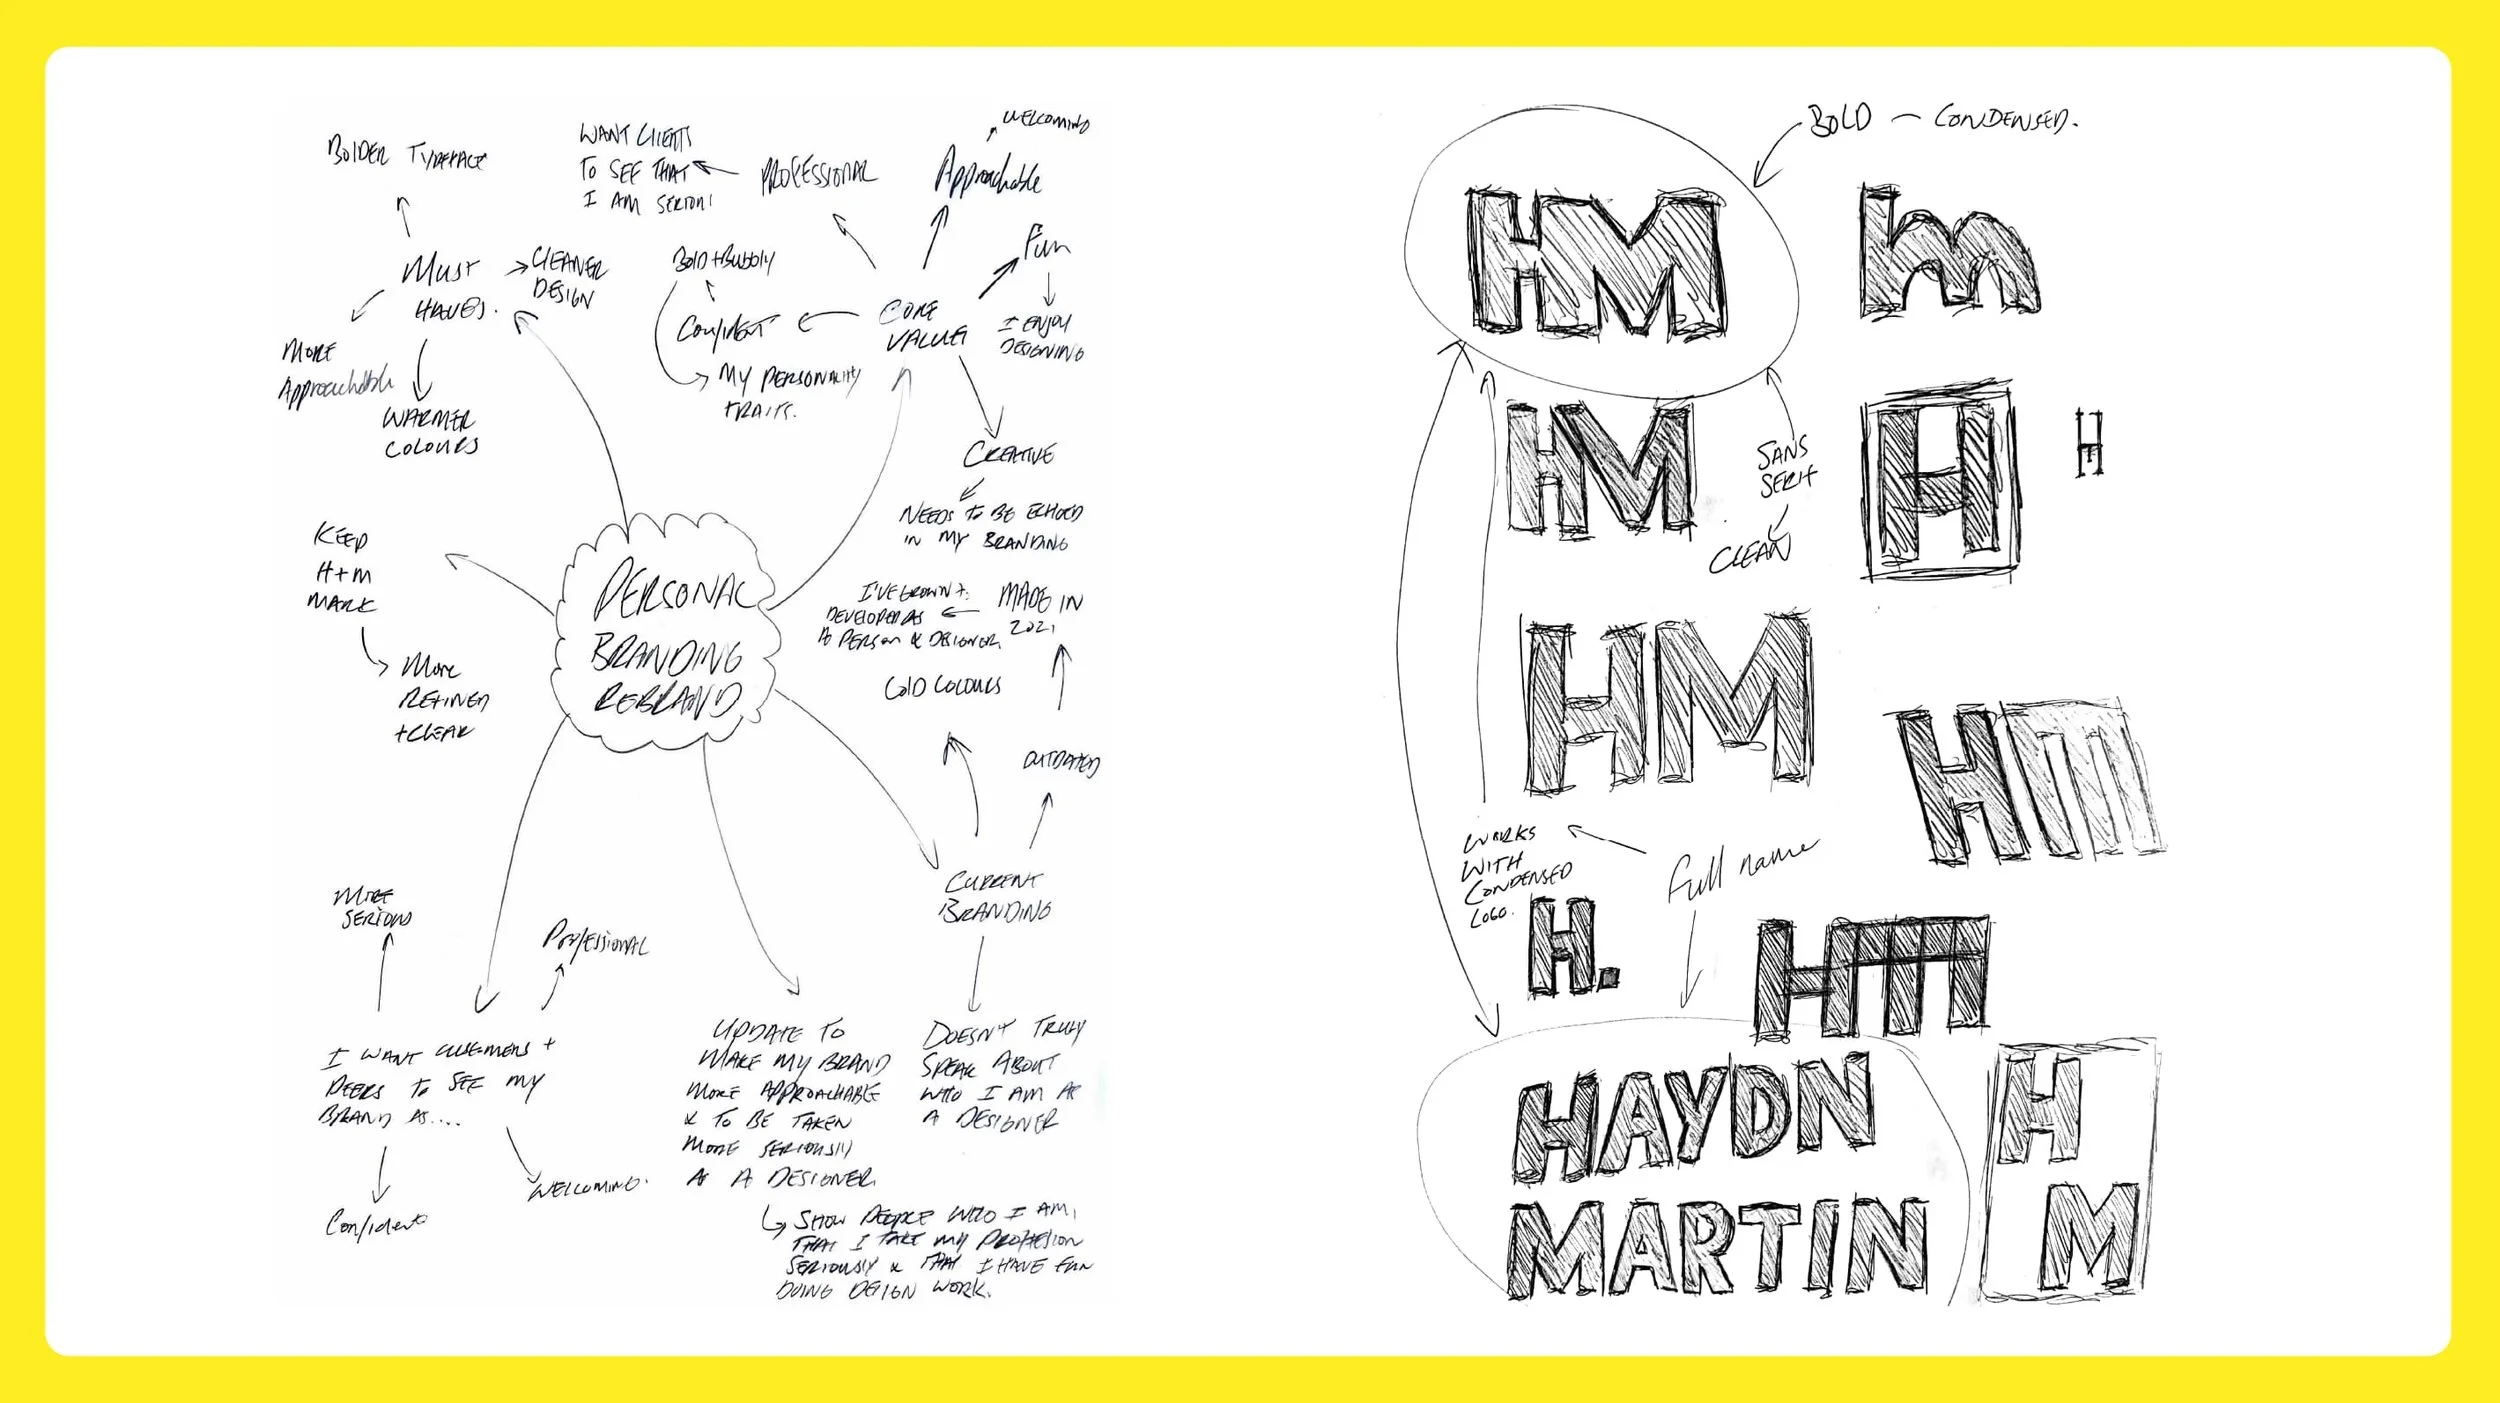 BOLDER TYPEFACE
WANT CLIENTS
TO SEE THAT
I AM SERIOUS
PROFESSIONAL
WELCOMING
Approachable
Fun
I ENJOY
DESIGNING
MUST
HAVES.
CLEANER
DESIGN
MORE
Approachable
WARMER
COLOURS
Bold + Bubbly
Confident
MY PERSONALITY
TRAITS.
CORE
VALUES
CREATIVE
NEEDS TO BE ECHOED
IN MY BRANDING
KEEP
H+M
MARK
MORE
REFINED
+ CLEAR
PERSONAL
BRANDING
REBRAND
I'VE GROWN +
DEVELOPED AS
A PERSON & DESIGNER
MADE IN
2021
COLD COLOURS
OUTDATED
CURRENT
BRANDING
DOESN'T TRULY
SPEAK ABOUT
WHO I AM AS
A DESIGNER
MORE
SERIOUS
PROFESSIONAL
I WANT CUSTOMERS +
PEERS TO SEE MY
BRAND AS....
Confident
WELCOMING.
UPDATE TO
MAKE MY BRAND
MORE APPROACHABLE
& TO BE TAKEN
MORE SERIOUSLY
AS A DESIGNER.
SHOW PEOPLE WHO I AM,
THAT I TAKE MY PROFESSION
SERIOUSLY & THAT I HAVE FUN
DOING DESIGN WORK.
BOLD — CONDENSED.
HM
hm
HM
SANS
SERIF
CLEAN
H
H
HM
HM
WORKS
WITH
CONDENSED
LOGO.
Full name
H.
HM
HAYDN
MARTIN
H
M